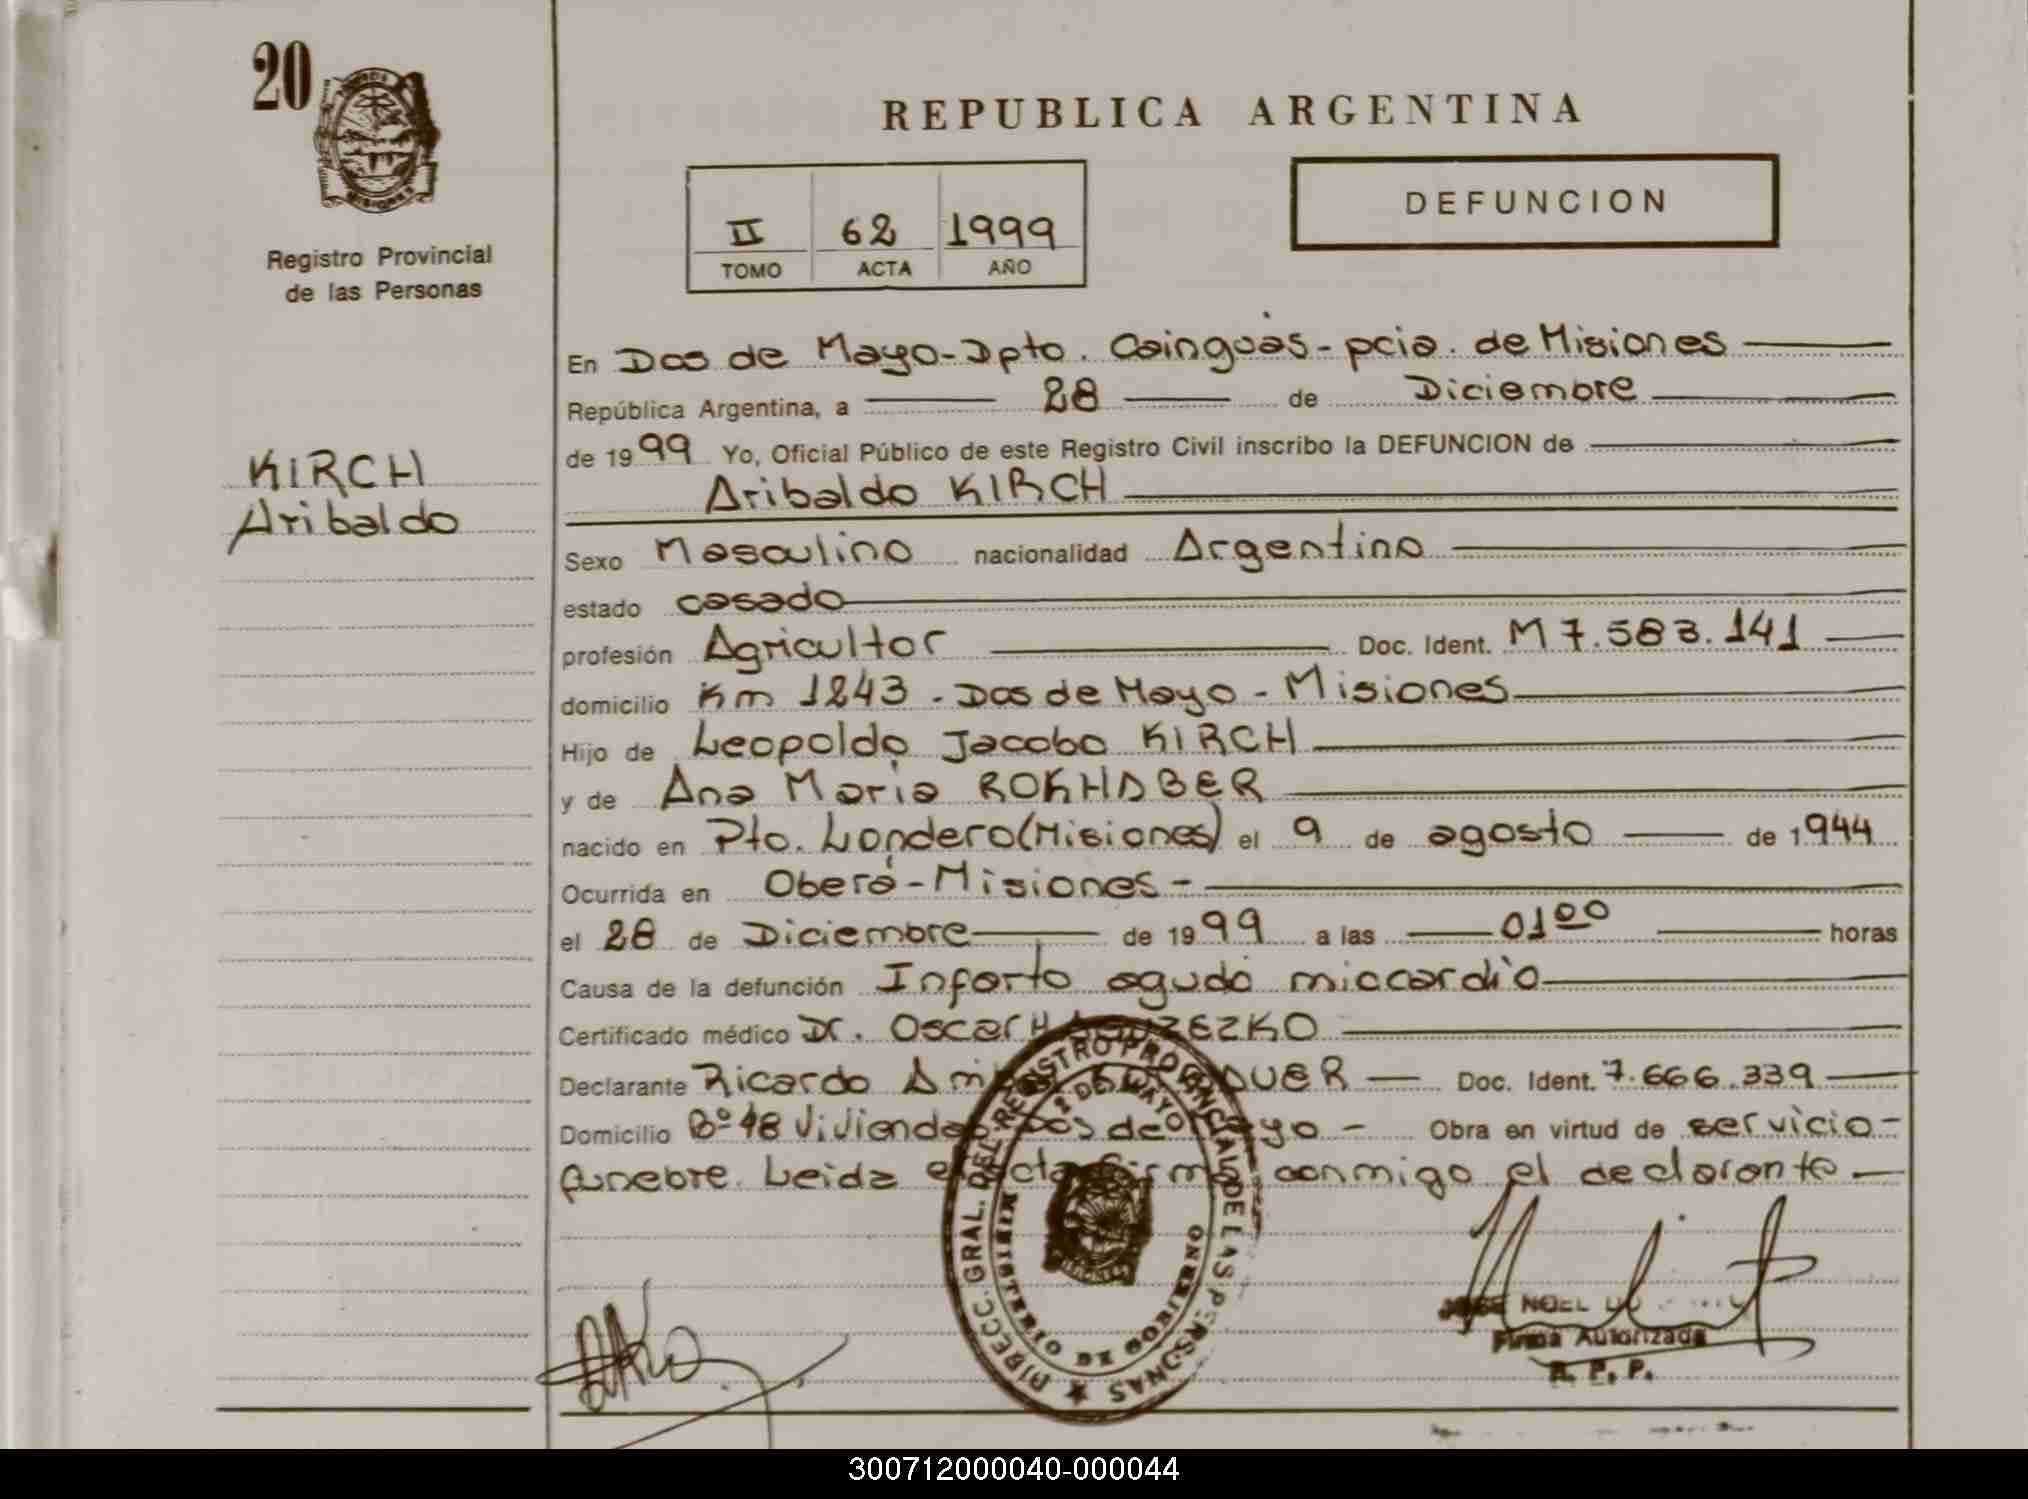 20
Registro Provincial
de las Personas
REPUBLICA ARGENTINA
II 62 1999
TOMO ACTA AÑO
DEFUNCION
KIRCH
Aribaldo
En Dos de Mayo-Dpto. Cainguás-pcia. de Misiones
República Argentina, a 28 de Diciembre
de 1999 Yo, Oficial Público de este Registro Civil inscribo la DEFUNCION de
Aribaldo KIRCH
Sexo Masculino nacionalidad Argentino
estado casado
profesión Agricultor Doc. Ident. M 7.583.141
domicilio Km 1243 - Dos de Mayo - Misiones
Hijo de Leopoldo Jacobo KIRCH
y de Ana Maria ROKHABER
nacido en Pto. Londero (Misiones) el 9 de agosto de 1944
Ocurrida en Oberá - Misiones -
el 28 de Diciembre de 1999 a las 01 00 horas
Causa de la defunción Infarto agudo miocardio
Certificado médico Dr. Oscar H
Declarante Ricardo Doc. Ident. 7.666.339
Domicilio Bº 48 Viviendas Dos de Mayo - Obra en virtud de servicio-
funebre. Leida el acta firma conmigo el declarante
DIRECC. GRAL. DEL REGISTRO PROVINCIAL DE LAS PERSONAS
2 DE MAYO
MINISTERIO DE GOBIERNO
JOSE NOEL
Firma Autorizada
R. P. P.
300712000040-000044